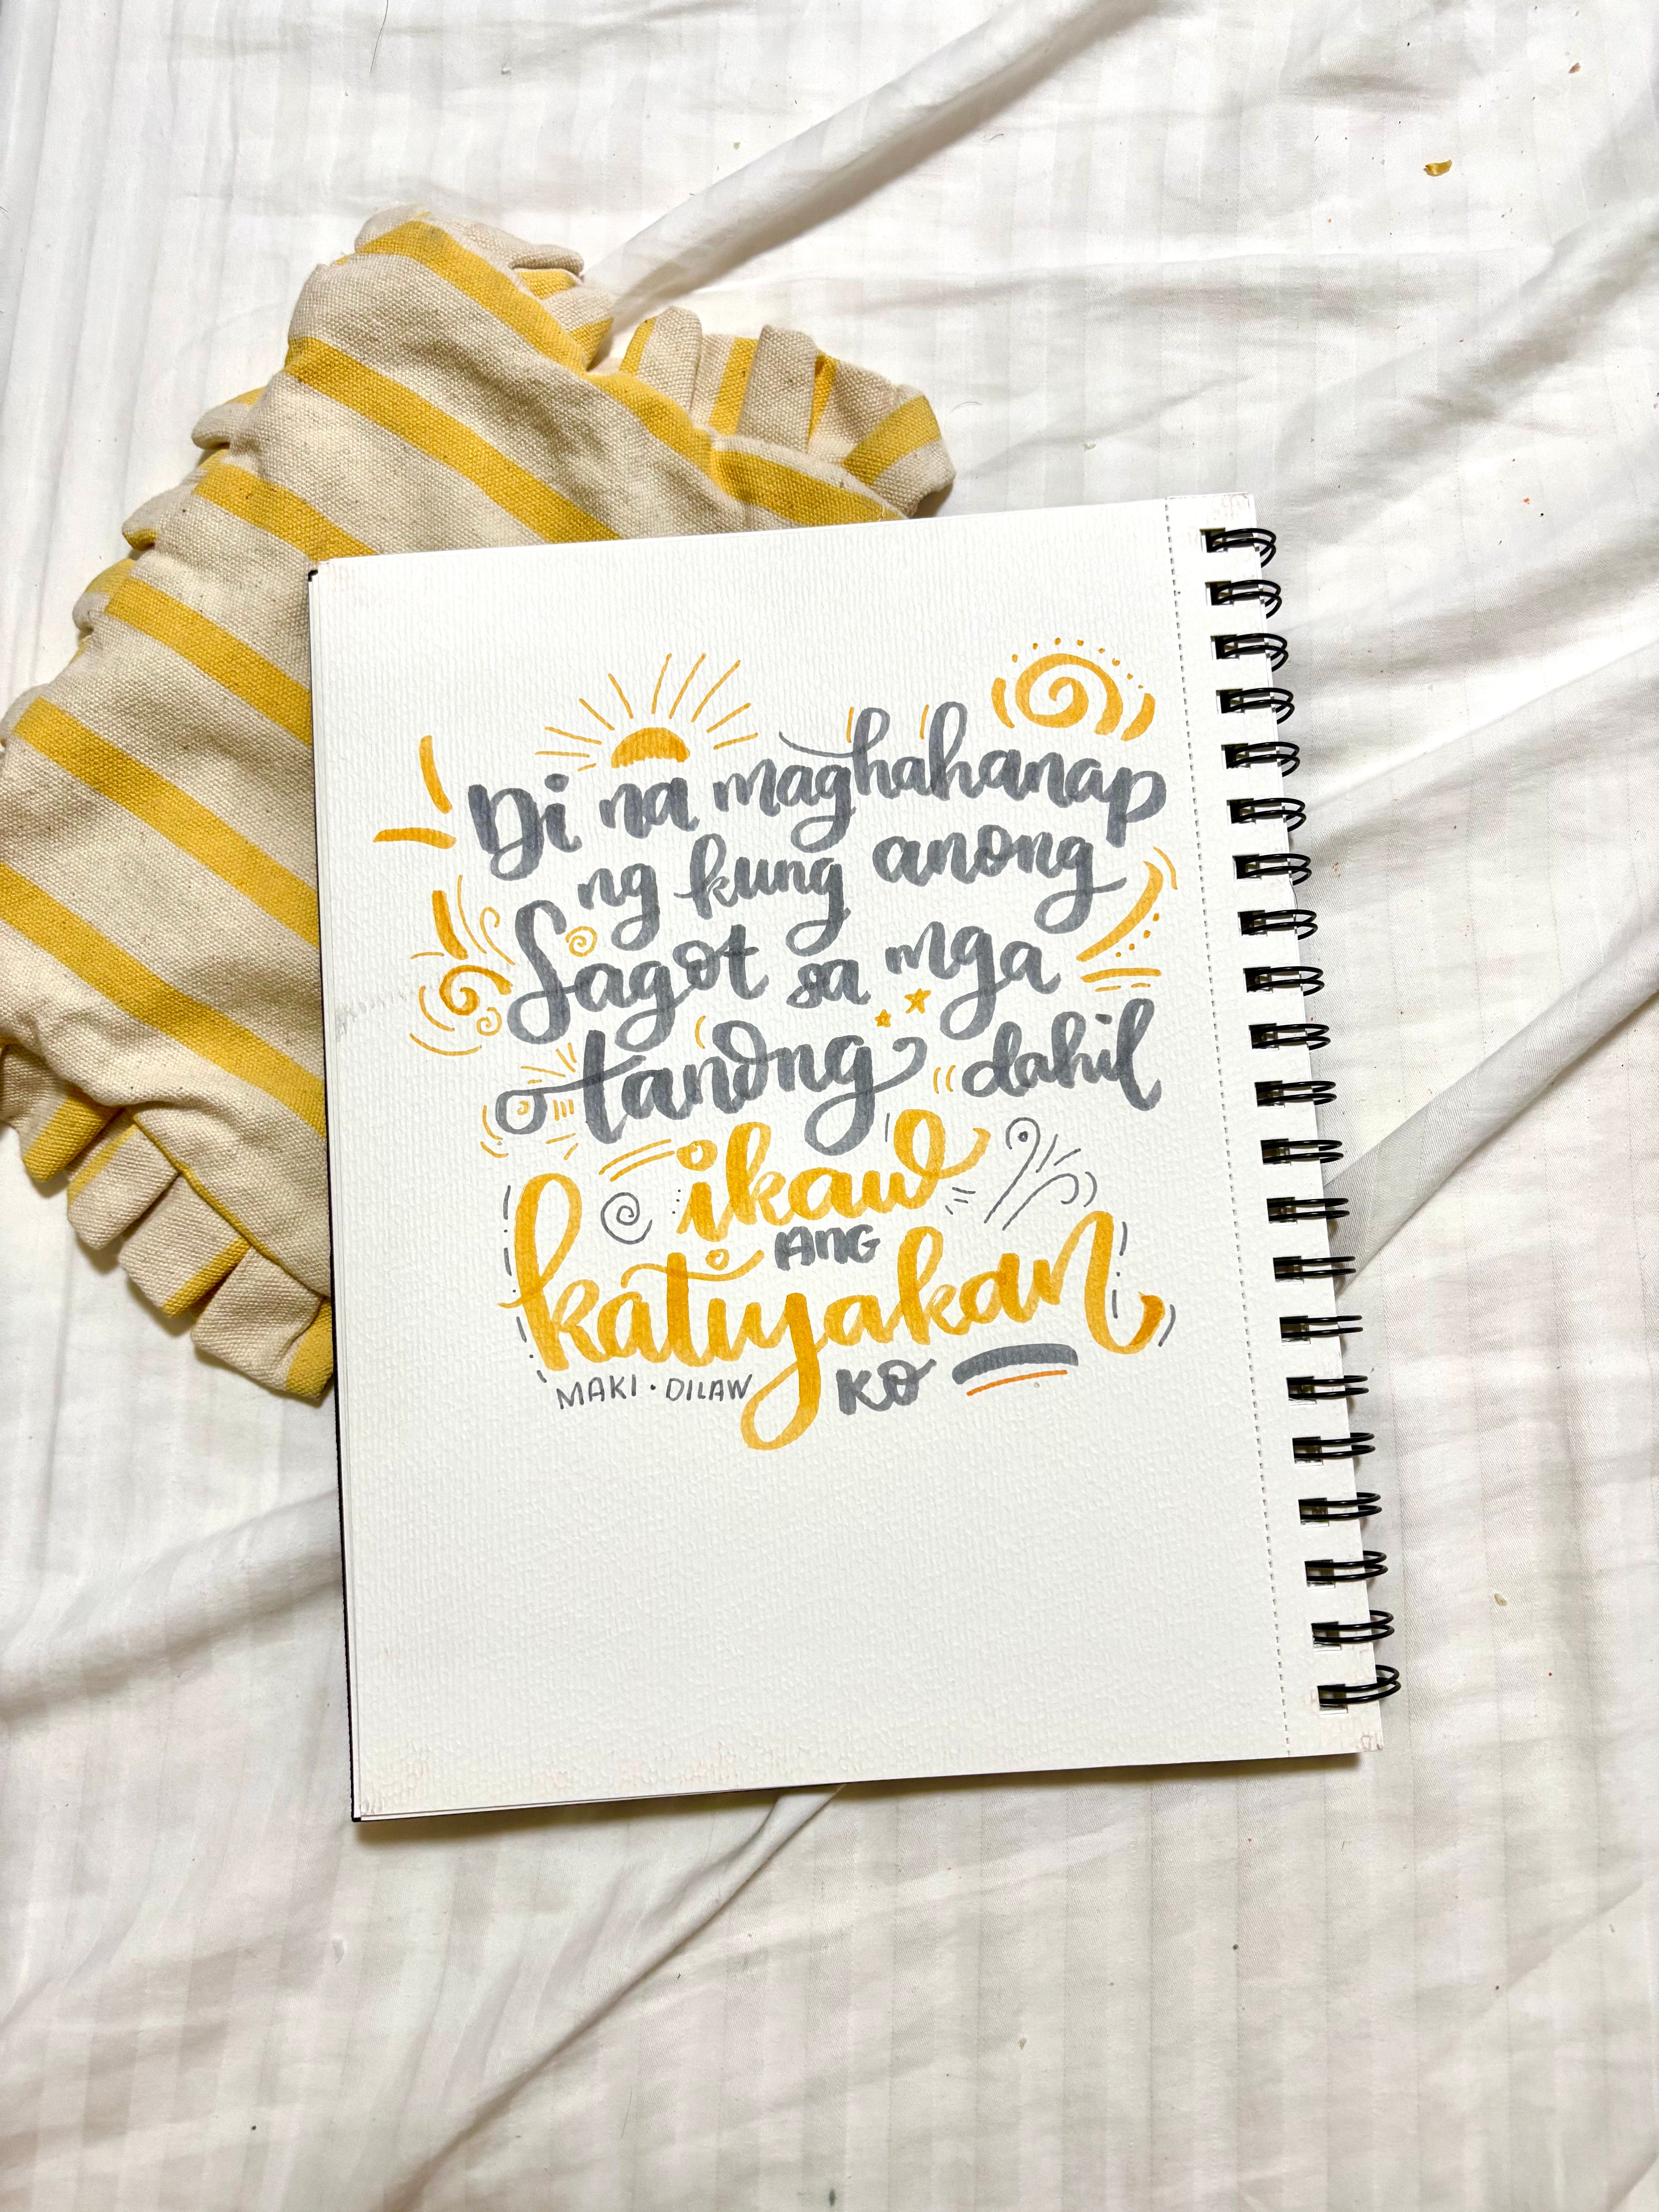 Di na maghahanap
ng kung anong
Sagot sa mga
tanong dahil
ikaw
ANG
katiyakan
KO
MAKI · DILAW